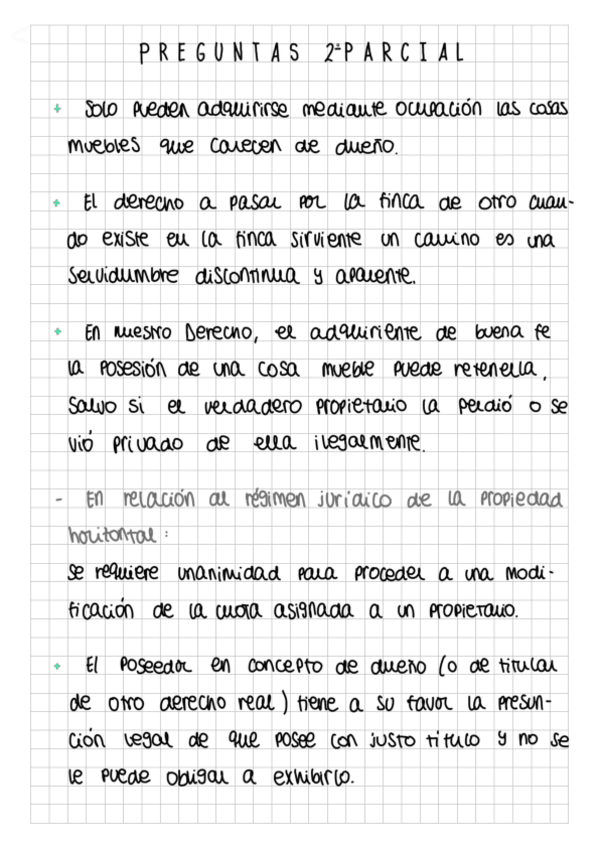 PREGUNTAS 2ª PARCIAL
+ Solo pueden adquirirse mediante ocupación las cosas
muebles que carecen de dueño.
+ El derecho a pasar por la finca de otro cuan-
do existe en la finca sirviente un camino es una
servidumbre discontinua y aparente.
+ En nuestro Derecho, el adquiriente de buena fe
la posesión de una cosa mueble puede retenerla,
salvo si el verdadero propietario la perdió o se
vió privado de ella ilegalmente.
- En relación al régimen jurídico de la propiedad
horitontal:
se requiere unanimidad para proceder a una modi-
ficación de la cuota asignada a un propietario.
+ El poseedor en concepto de dueño (o de titular
de otro derecho real) tiene a su favor la presun-
ción legal de que posee con justo titulo y no se
le puede obligar a exhibirlo.